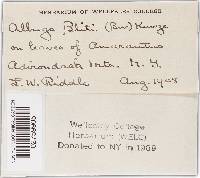 HERBARIUM OF WELLESLEY COLLEGE
Albugo Bliti (Biv) Kuntze
on leaves of Amarantus
Adirondack Mts. N. Y.
L. W. Riddle Aug. 1908
Wellesley College
Herbarium (WELC)
Donated to NY in 1969